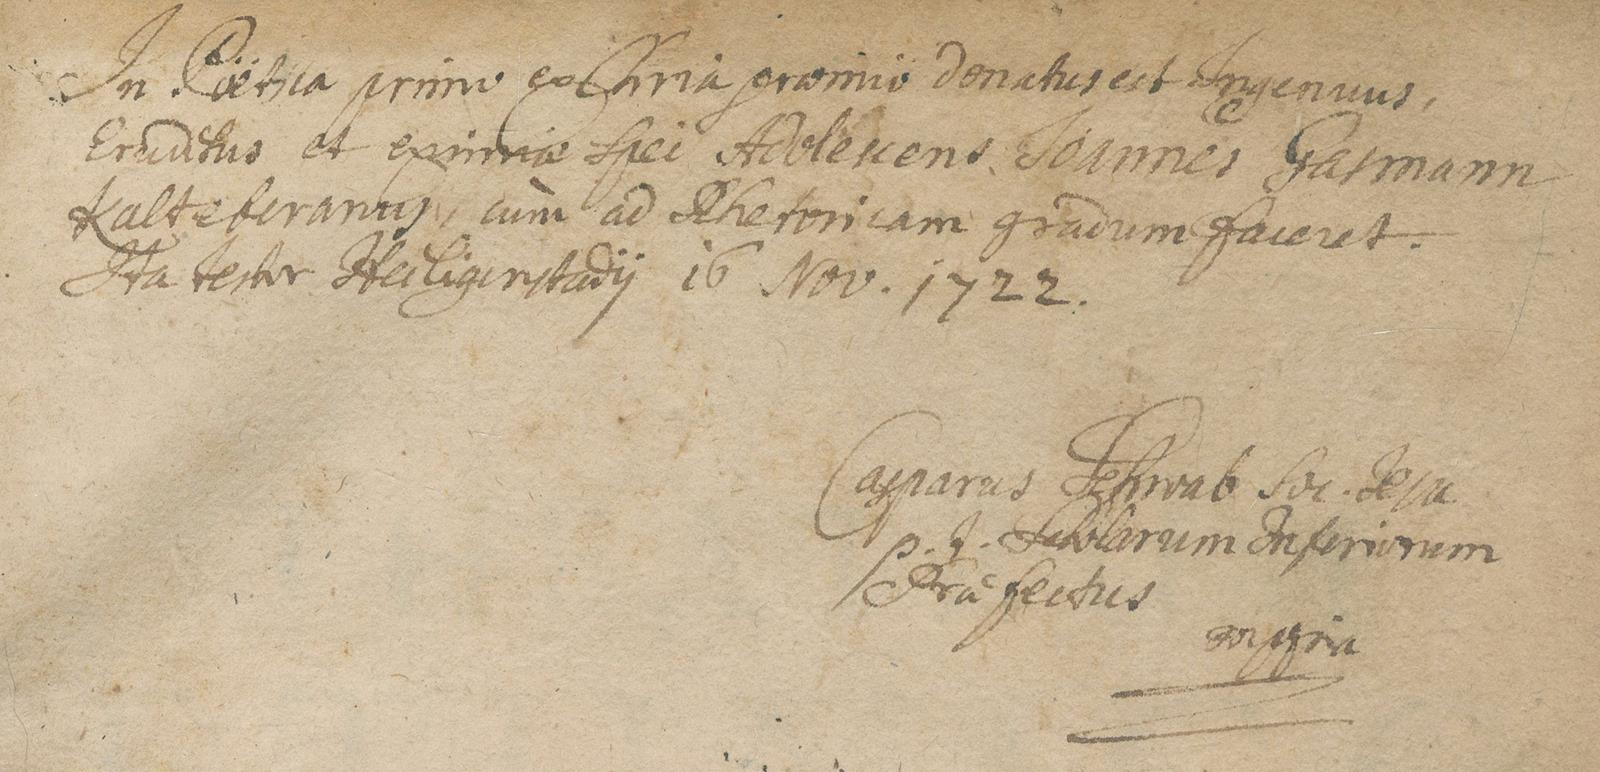 In Poëtica primo ex Chria præmio donatus est Ingenuus,
Eruditus et eximiæ spei Adolescens Joannes Gasmann
Kalteberanus, cùm ad Rhetoricam gradum faceret.
Ita testor Heiligenstadij 16 Nov. 1722.
Casparus Schwab Soc. Jesu
p. t. Scholarum Inferiorum
Præfectus
mppria